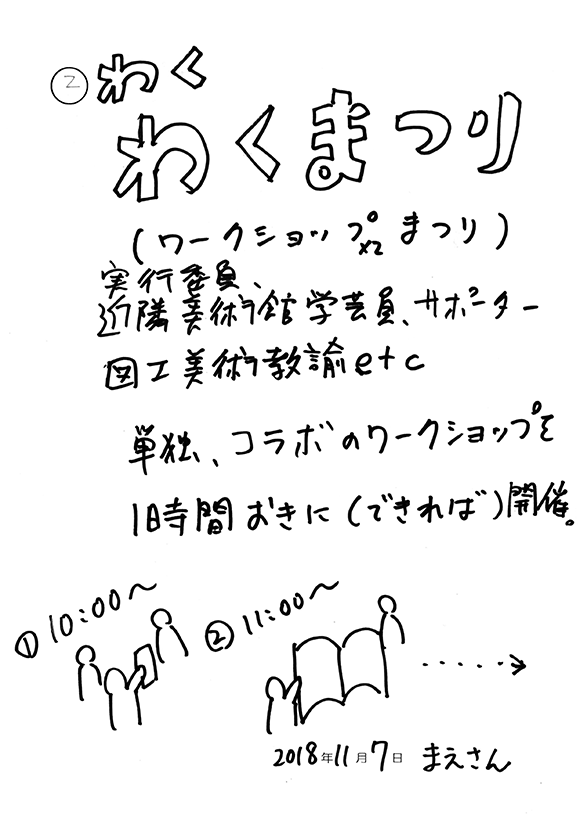 ② わく
わくまつり
(ワークショップ×2まつり)
実行委員、
近隣美術館学芸員、サポーター
図工美術教諭etc
単独、コラボのワークショップを
1時間おきに(できれば)開催。
① 10:00〜
② 11:00〜
2018年11月7日 まえさん